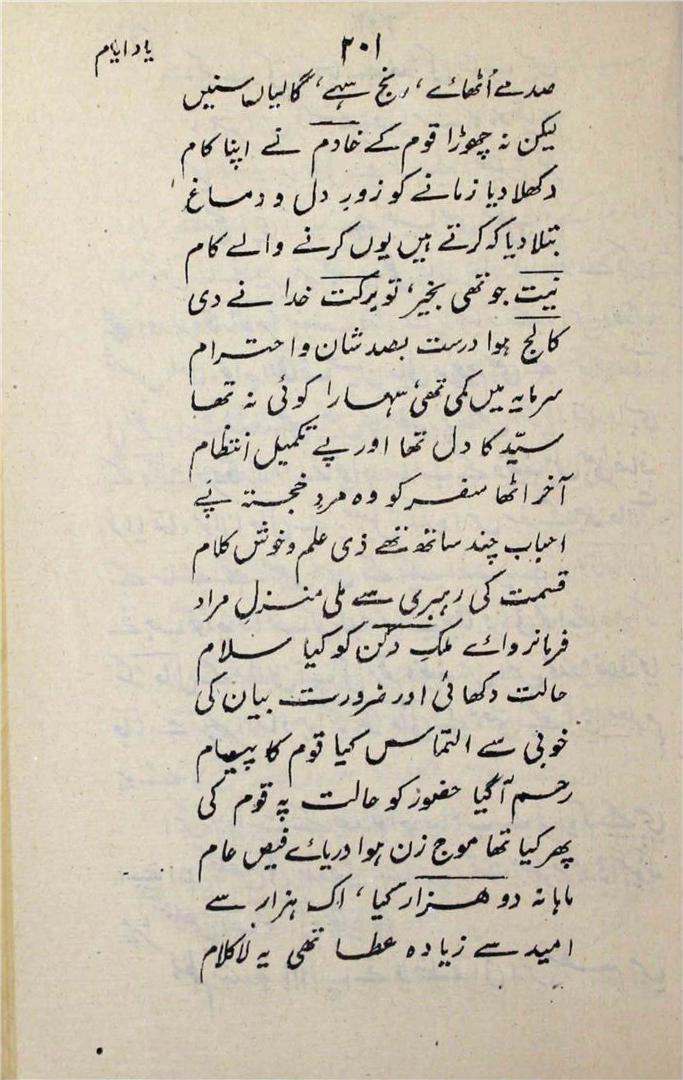 یاد ایام
۲۰۱
صدمے اُٹھائے، رنج سہے، گالیاں سنیں
لیکن نہ چھوڑا قوم کے خادم نے اپنا کام
دکھلا دیا زمانے کو زورِ دل و دماغ
بتلا دیا کہ کرتے ہیں یوں کرنے والے کام
نیت جو تھی بخیر، تو برکت خدا نے دی
کالج ہوا درست بصد شان و احترام
سرمایہ میں کمی تھی، سہارا کوئی نہ تھا
سیّد کا دل تھا اور پے تکمیل انتظام
آخر اٹھا سفر کو وہ مردِ خجستہ پے
احباب چند ساتھ تھے ذی علم و خوش کلام
قسمت کی رہبری سے ملی منزلِ مراد
فرمانروائے ملکِ دکن کو کیا سلام
حالت دکھائی اور ضرورت بیان کی
خوبی سے التماس کیا قوم کا پیام
رحم آگیا حضور کو حالت پہ قوم کی
پھر کیا تھا موج زن ہوا دریائے فیض عام
ماہانہ دو ہزار کیا، اک ہزار سے
امید سے زیادہ عطا تھی یہ لاکلام